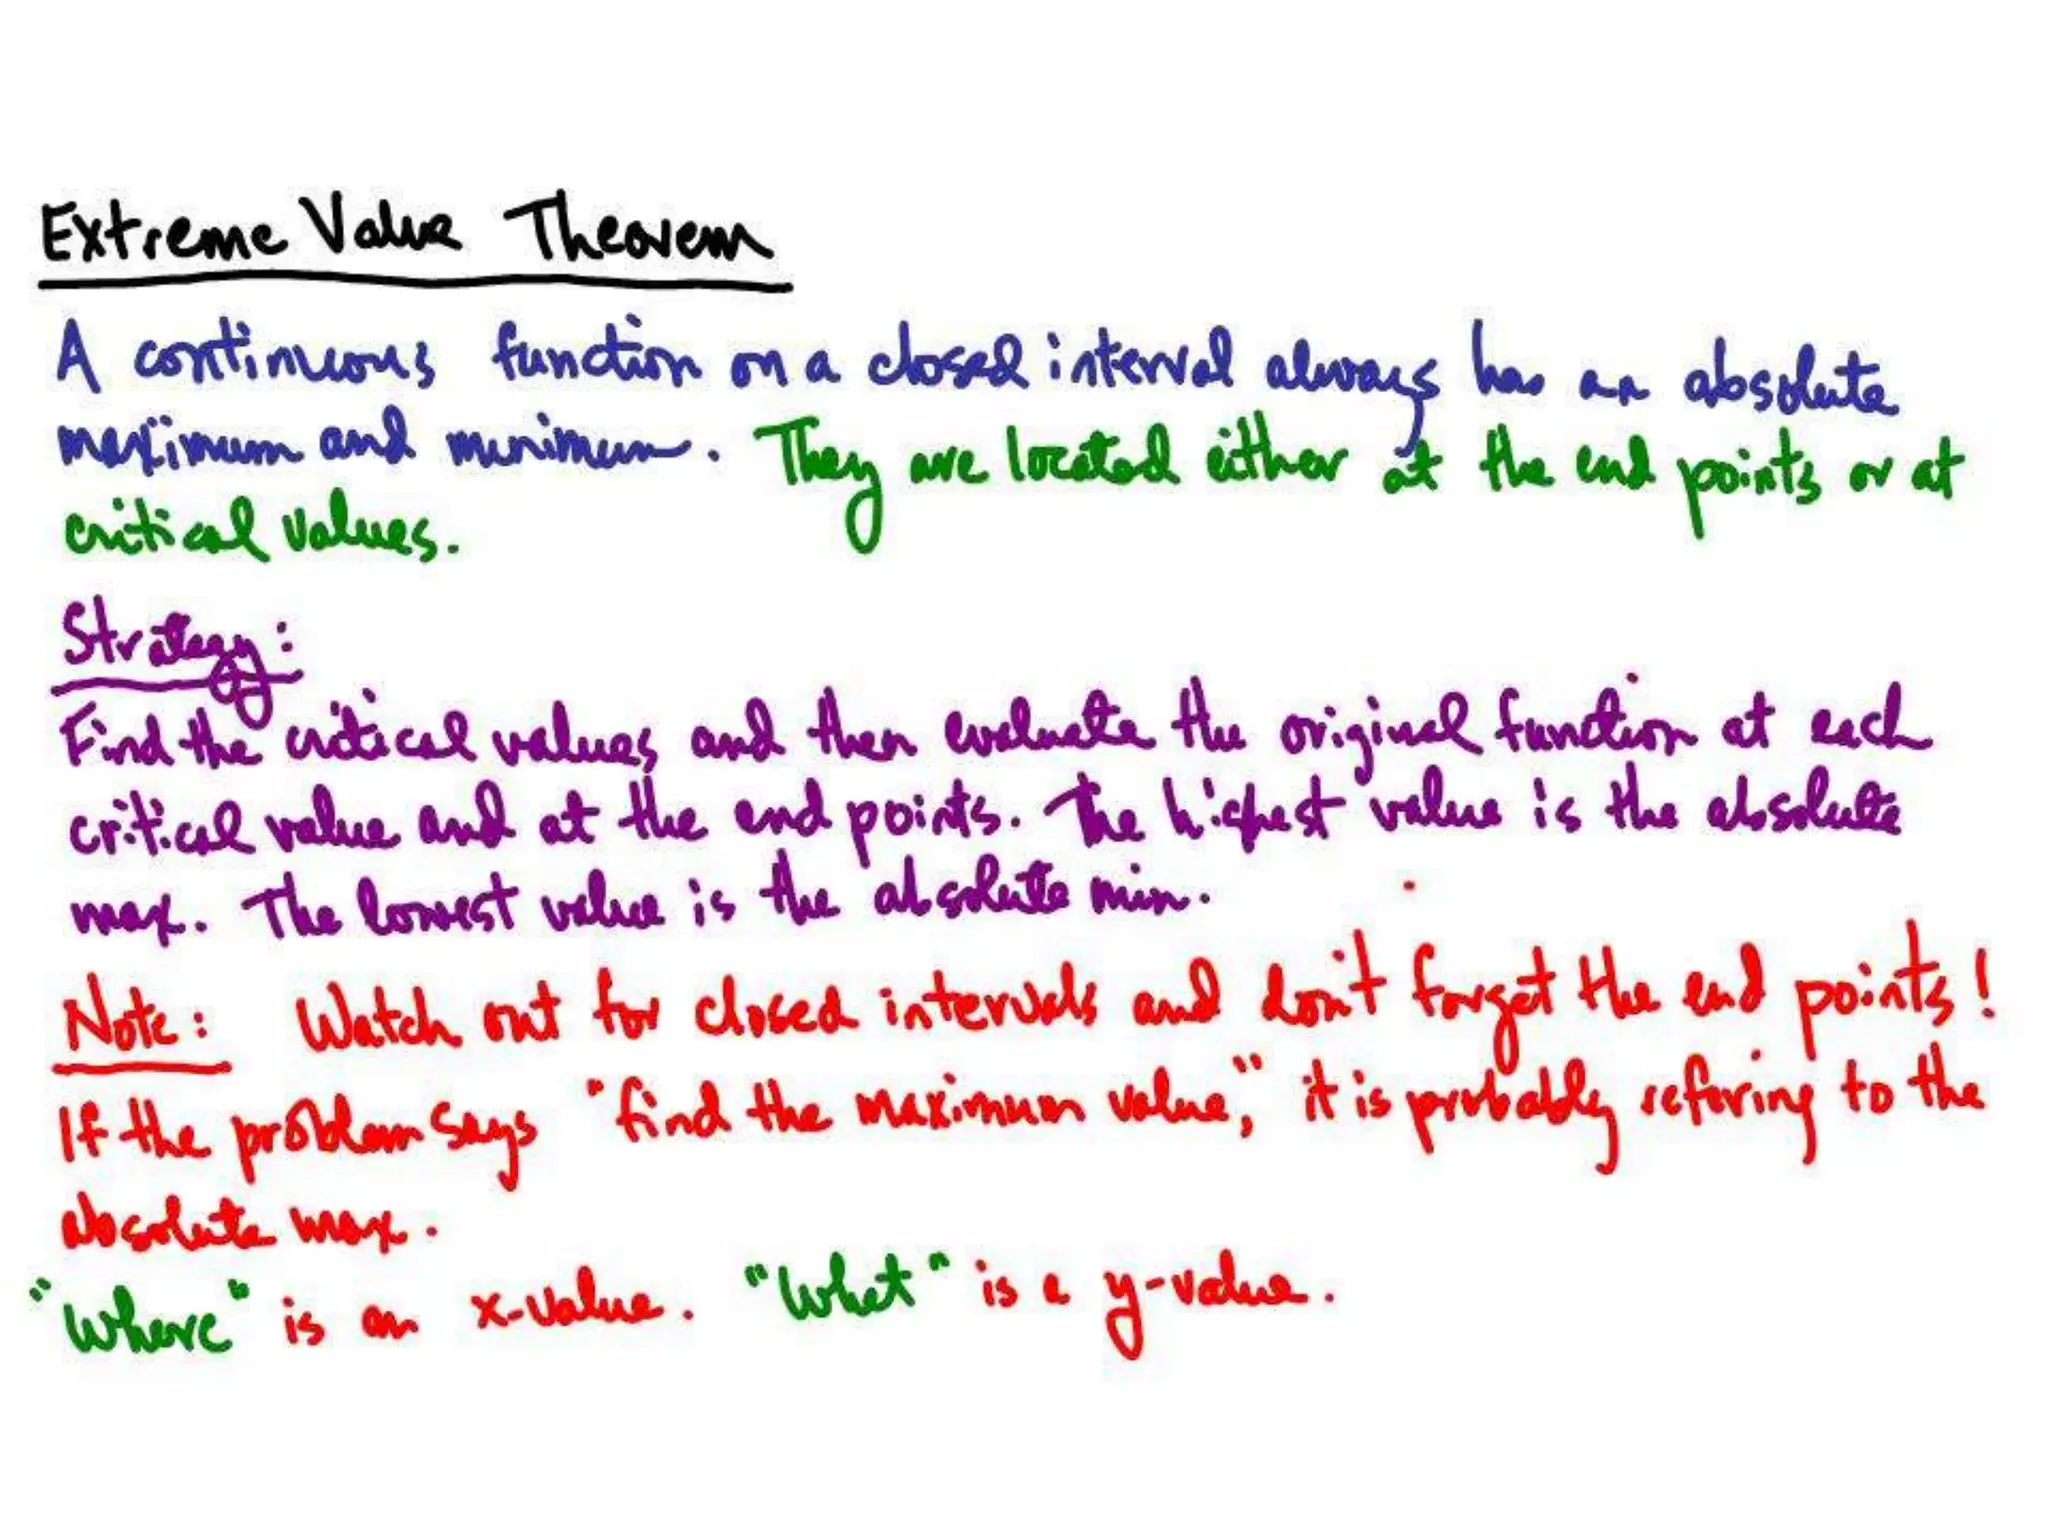 Extreme Value Theorem
A continuous function on a closed interval always has an absolute
maximum and minimum. They are located either at the end points or at
critical values.
Strategy:
Find the critical values and then evaluate the original function at each
critical value and at the end points. The highest value is the absolute
max. The lowest value is the absolute min.
Note: Watch out for closed intervals and don't forget the end points!
If the problem says "find the maximum value," it is probably refering to the
absolute max.
"Where" is an x-value. "What" is a y-value.